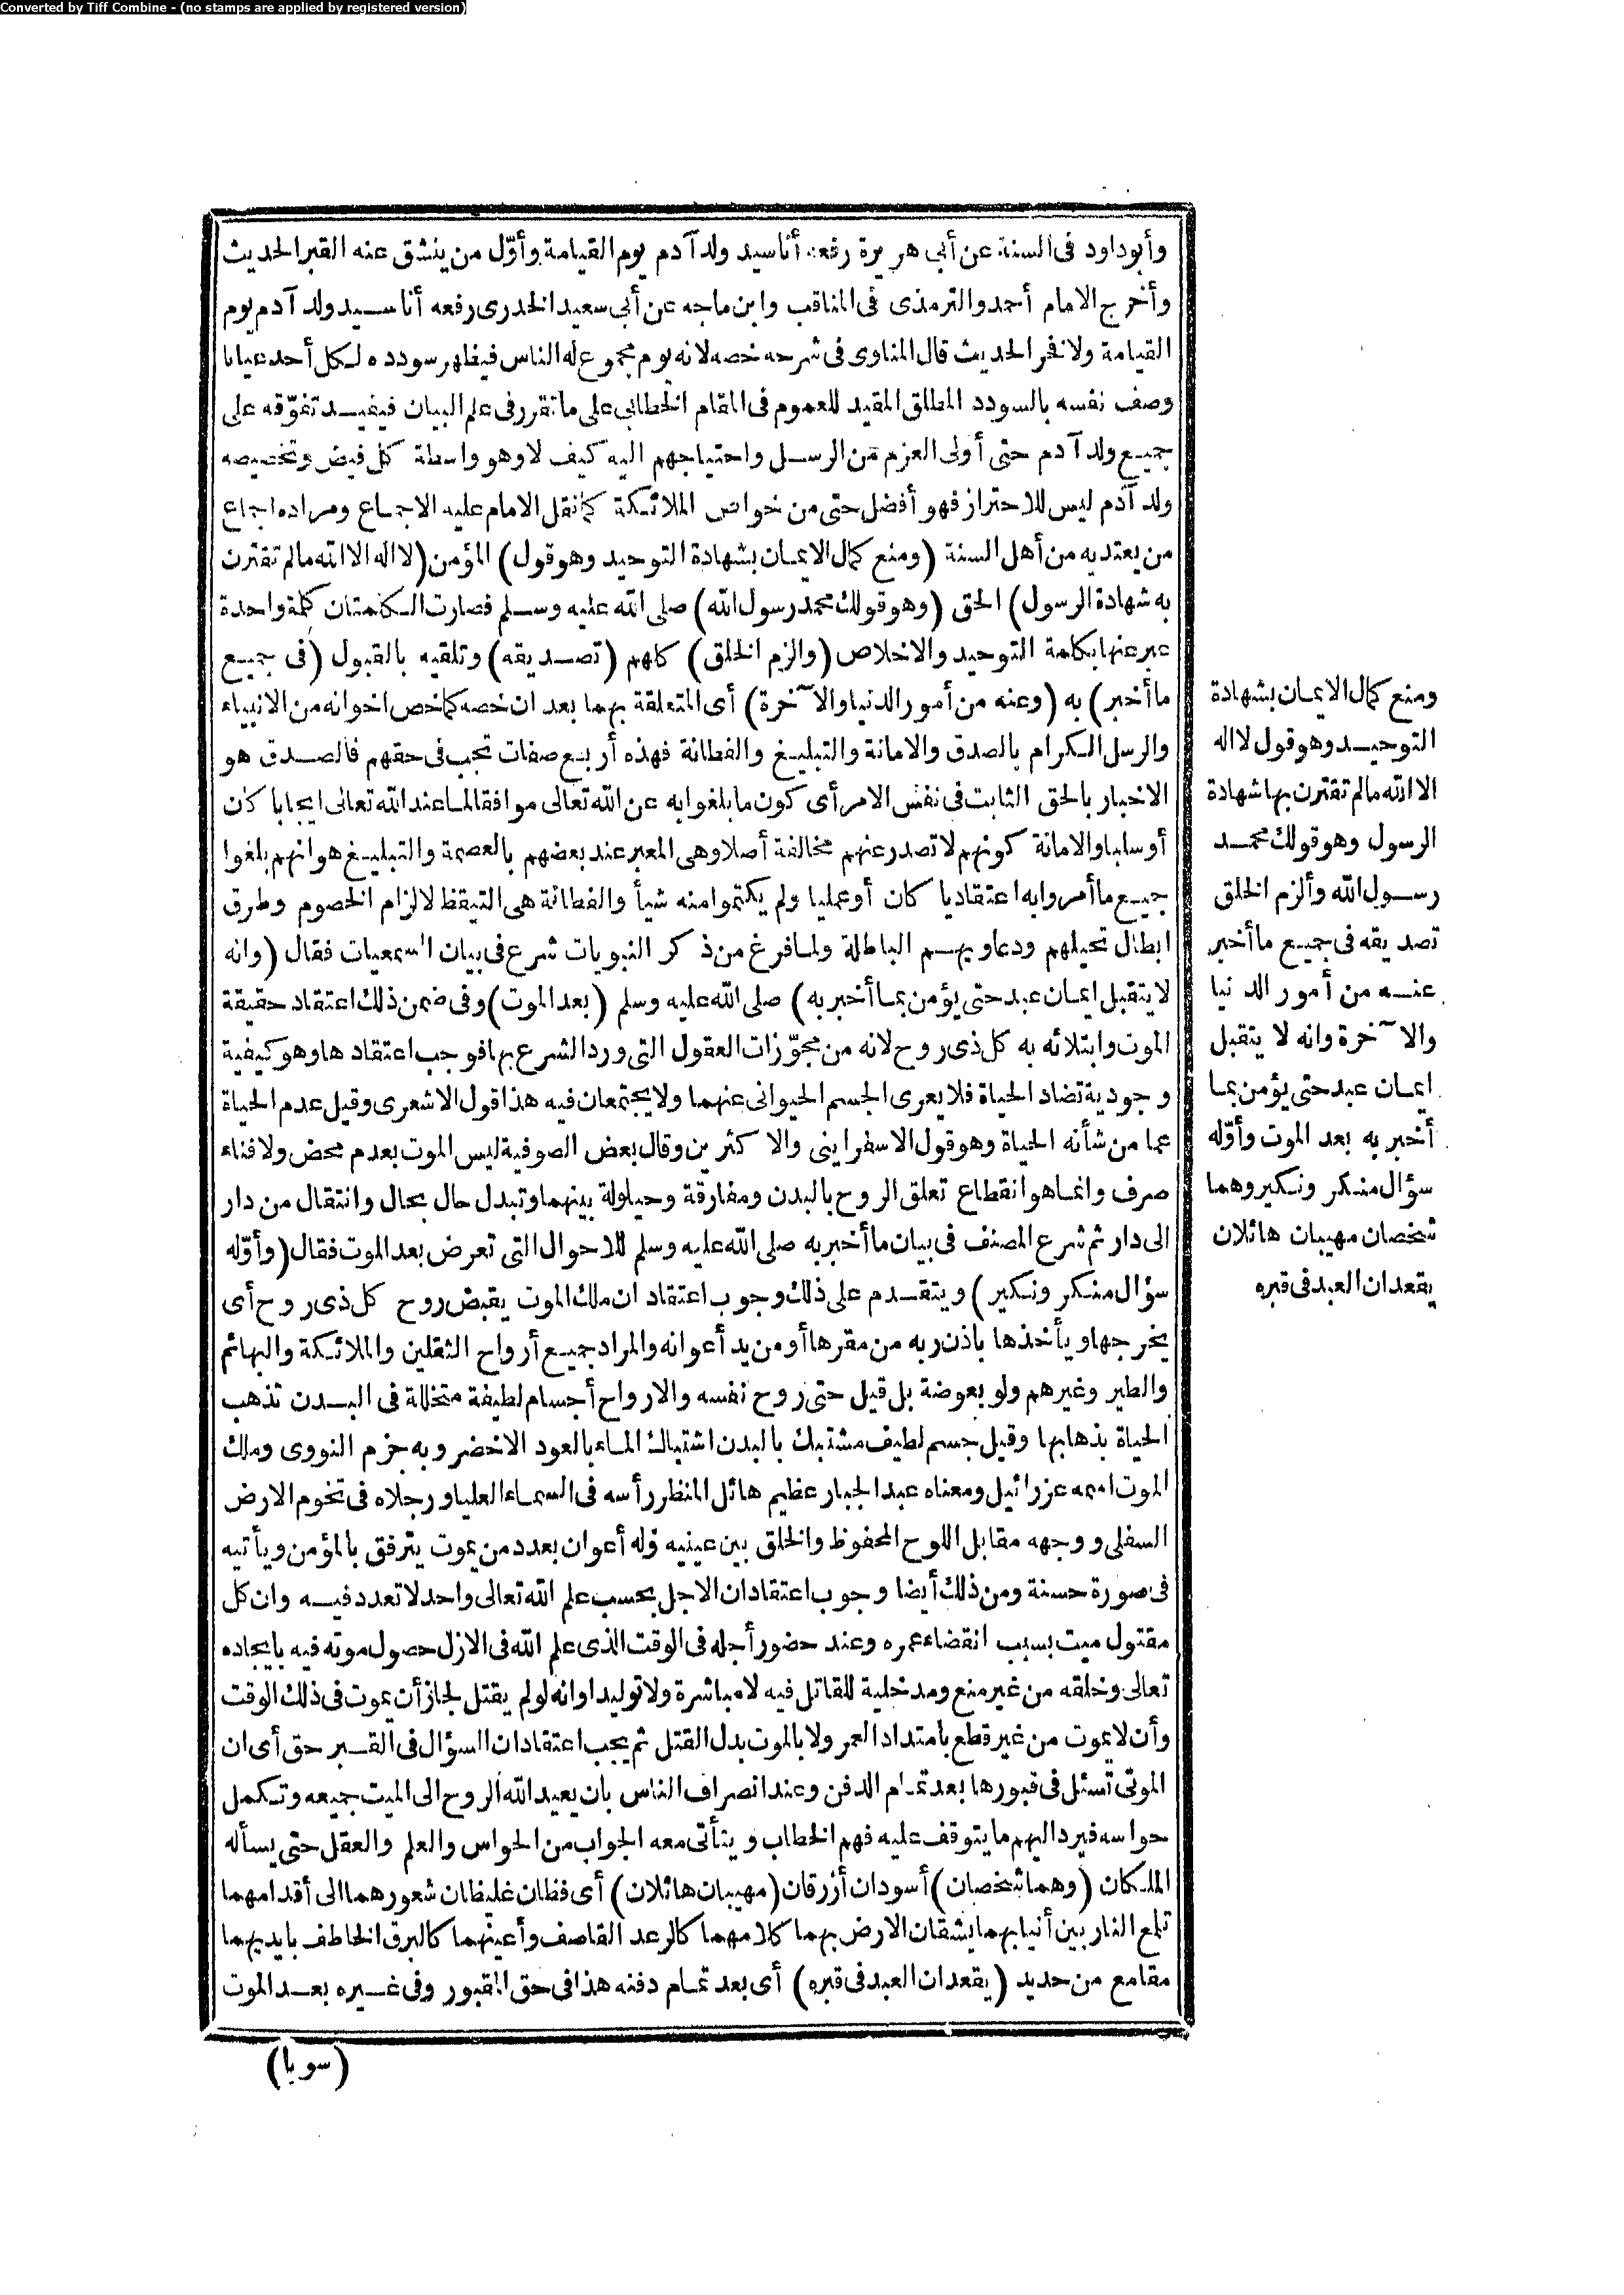 Converted by Tiff Combine - (no stamps are applied by registered version)
وأبوداود فى السنة عن أبى هريرة رفعه أناسيد ولد آدم يوم القيامة وأوّل من ينشق عنه القبر الحديث
وأخرج الامام أحمد والترمذى فى المناقب وابن ماجه عن أبى سعيد الخدرى رفعه أنا سيد ولد آدم يوم
القيامة ولا فخر الحديث قال المناوى فى شرحه خصه لانه يوم مجموع له الناس فيظهر سودده لكل أحد عيانا
وصف نفسه بالسودد المطلق المقيد للعموم فى المقام الخطابى على ما تقرر فى علم البيان فيفيد تفوّقه على
جميع ولد آدم حتى أولى العزم من الرسل واحتياجهم اليه كيف لا وهو واسطة كل فيض وتخصيصه
ولد آدم ليس للاحتراز فهو أفضل حتى من خواص الملائكة كما نقل الامام عليه الاجماع ومراده اجماع
من يعتد به من أهل السنة (ومنع كمال الايمان بشهادة التوحيد وهو قول) المؤمن (لا اله الا الله مالم تقترن
به شهادة الرسول) الحق (وهو قولك محمد رسول الله) صلى الله عليه وسلم فصارت الكلمتان كلمة واحدة
عبر عنها بكلمة التوحيد والاخلاص (والزم الخلق) كلهم (تصديقه) وتلقيه بالقبول (فى جميع
ما أخبر) به (وعنه من أمور الدنيا والآخرة) أى المتعلقة بهما بعد ان خصه كما خص اخوانه من الانبياء
والرسل الكرام بالصدق والامانة والتبليغ والفطانة فهذه أربع صفات تجب فى حقهم فالصدق هو
الاخبار بالحق الثابت فى نفس الامر أى كون ما بلغوا به عن الله تعالى موافقا لما عند الله تعالى ايجابا كان
أو سلبا والامانة كونهم لا تصدر عنهم مخالفة أصلا وهى المعبر عند بعضهم بالعصمة والتبليغ هو انهم بلغوا
جميع ما أمروا به اعتقاديا كان أو عمليا ولم يكتموا منه شيأ والفطانة هى التيقظ لالزام الخصوم وطرق
ابطال تحيلهم ودعاويهم الباطلة ولما فرغ من ذكر النبويات شرع فى بيان السمعيات فقال (وانه
لا يتقبل ايمان عبد حتى يؤمن بما أخبر به) صلى الله عليه وسلم (بعد الموت) وفى ضمن ذلك اعتقاد حقيقة
الموت وابتلائه به كل ذى روح لانه من مجوّزات العقول التى ورد الشرع بها فوجب اعتقادها وهو كيفية
وجودية تضاد الحياة فلا يعرى الجسم الحيوانى عنهما ولا يجتمعان فيه هذا قول الاشعرى وقيل عدم الحياة
عما من شأنه الحياة وهو قول الاسفراينى والاكثرين وقال بعض الصوفية ليس الموت بعدم محض ولا فناء
صرف وانما هو انقطاع تعلق الروح بالبدن ومفارقة وحيلولة بينهما وتبدل حال بحال وانتقال من دار
الى دار ثم شرع المصنف فى بيان ما أخبر به صلى الله عليه وسلم للاحوال التى تعرض بعد الموت فقال (وأوّله
سؤال منكر ونكير) ويتقدم على ذلك وجوب اعتقاد ان ملك الموت يقبض روح كل ذى روح أى
يخرجها ويأخذها باذن ربه من مقرها أو من يد أعوانه والمراد جميع أرواح الثقلين والملائكة والبهائم
والطير وغيرهم ولو بعوضة بل قيل حتى روح نفسه والارواح أجسام لطيفة متخللة فى البدن تذهب
الحياة بذهابها وقيل جسم لطيف مشتبك بالبدن اشتباك الماء بالعود الاخضر وبه جزم النووى وملك
الموت اسمه عزرائيل ومعناه عبد الجبار عظيم هائل المنظر رأسه فى السماء العليا ورجلاه فى تخوم الارض
السفلى ووجهه مقابل اللوح المحفوظ والخلق بين عينيه وله أعوان بعدد من يموت يترفق بالمؤمن ويأتيه
فى صورة حسنة ومن ذلك أيضا وجوب اعتقاد ان الاجل بحسب علم الله تعالى واحد لا تعدد فيه وان كل
مقتول ميت بسبب انقضاء عمره وعند حضور أجله فى الوقت الذى علم الله فى الازل حصول موته فيه بايجاده
تعالى وخلقه من غير منع ومدخلية للقاتل فيه لا مباشرة ولا توليدا وانه لو لم يقتل لجاز أن يموت فى ذلك الوقت
وأن لا يموت من غير قطع بامتداد العمر ولا بالموت بدل القتل ثم يجب اعتقاد ان السؤال فى القبر حق أى ان
الموتى تسئل فى قبورها بعد تمام الدفن وعند انصراف الناس بان يعيد الله الروح الى الميت جميعه وتكمل
حواسه فيرد اليهم ما يتوقف عليه فهم الخطاب ويتأتى معه الجواب من الحواس والعلم والعقل حتى يسأله
الملكان (وهما شخصان) أسودان أزرقان (مهيبان هائلان) أى فظان غليظان شعورهما الى أقدامهما
تلمع النار بين أنيابهما يشقان الارض بهما كلامهما كالرعد القاصف وأعينهما كالبرق الخاطف بايديهما
مقامع من حديد (يقعدان العبد فى قبره) أى بعد تمام دفنه هذا فى حق المقبور وفى غيره بعد الموت
(سويا)
ومنع كمال الايمان بشهادة
التوحيد وهو قول لا اله
الا الله مالم تقترن بها شهادة
الرسول وهو قولك محمد
رسول الله وألزم الخلق
تصديقه فى جميع ما أخبر
عنه من أمور الدنيا
والآخرة وانه لا يتقبل
ايمان عبد حتى يؤمن بما
أخبر به بعد الموت وأوّله
سؤال منكر ونكير وهما
شخصان مهيبان هائلان
يقعدان العبد فى قبره